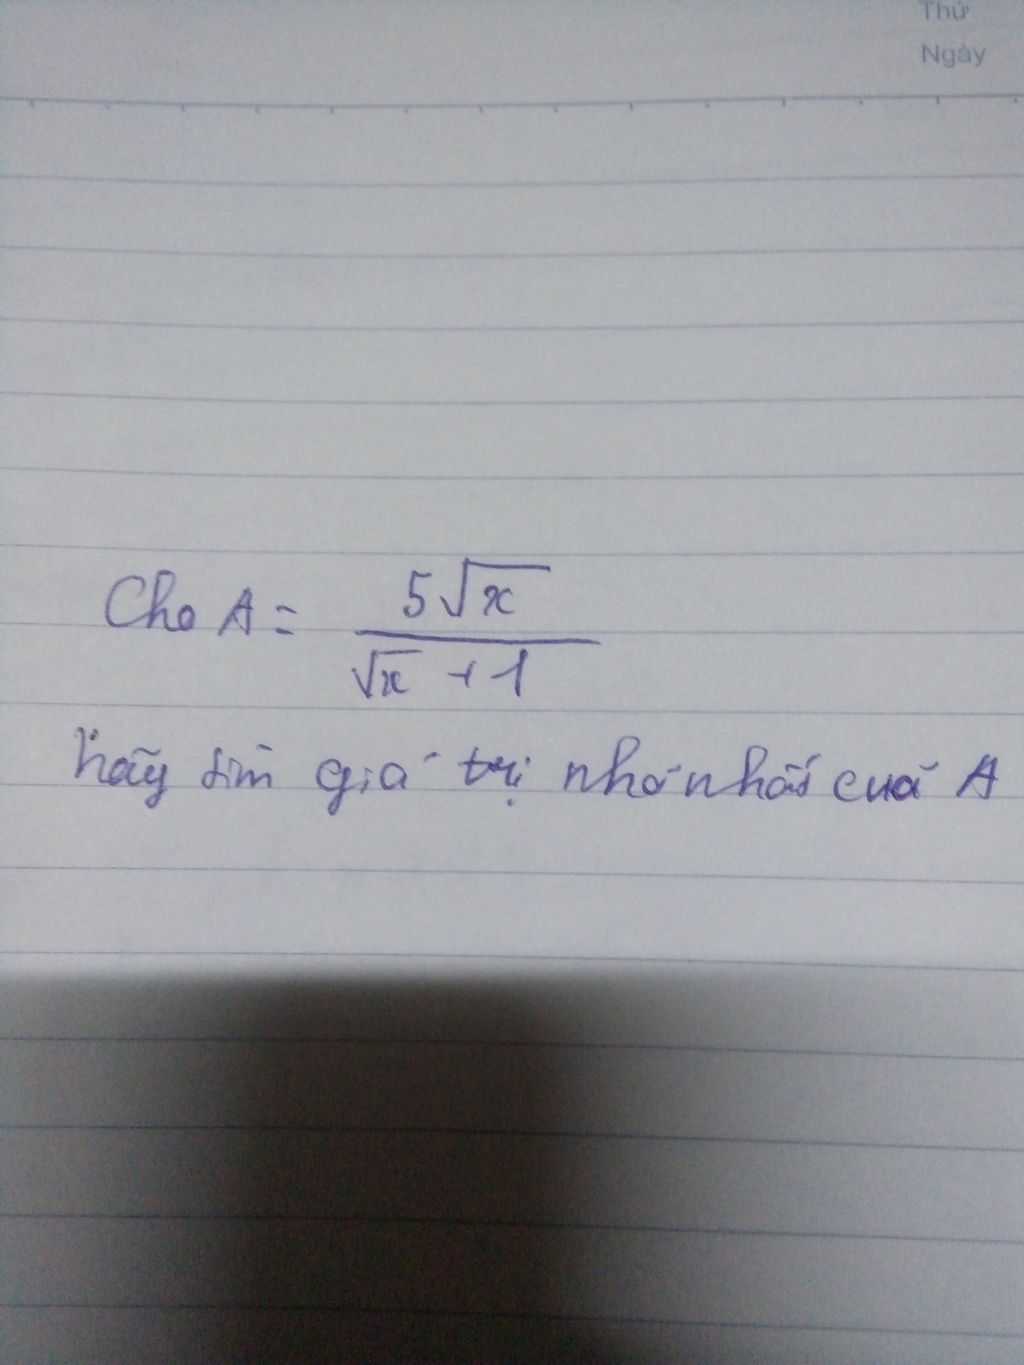 Thứ
Ngày
Cho A = \frac{5\sqrt{x}}{\sqrt{x} + 1}
hãy tìm giá trị nhỏ nhất của A